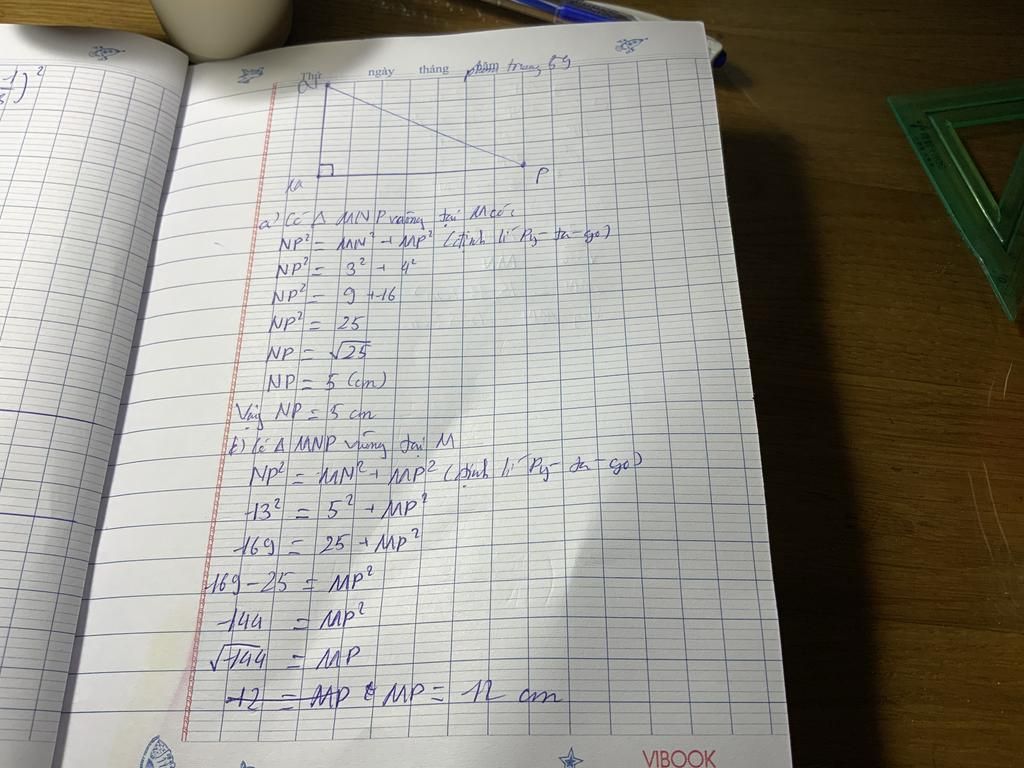 1/3)²
Thứ ngày tháng năm trang 69
N
M P
a) Có Δ MNP vuông tại M có:
NP² = MN² + MP² (định lí Py-ta-go)
NP² = 3² + 4²
NP² = 9 + 16
NP² = 25
NP = √25
NP = 5 (cm)
Vậy NP = 5 cm
b) Có Δ MNP vuông tại M
NP² = MN² + MP² (định lí Py-ta-go)
13² = 5² + MP²
169 = 25 + MP²
169 - 25 = MP²
144 = MP²
√144 = MP
12 = MP MP = 12 cm
VIBOOK